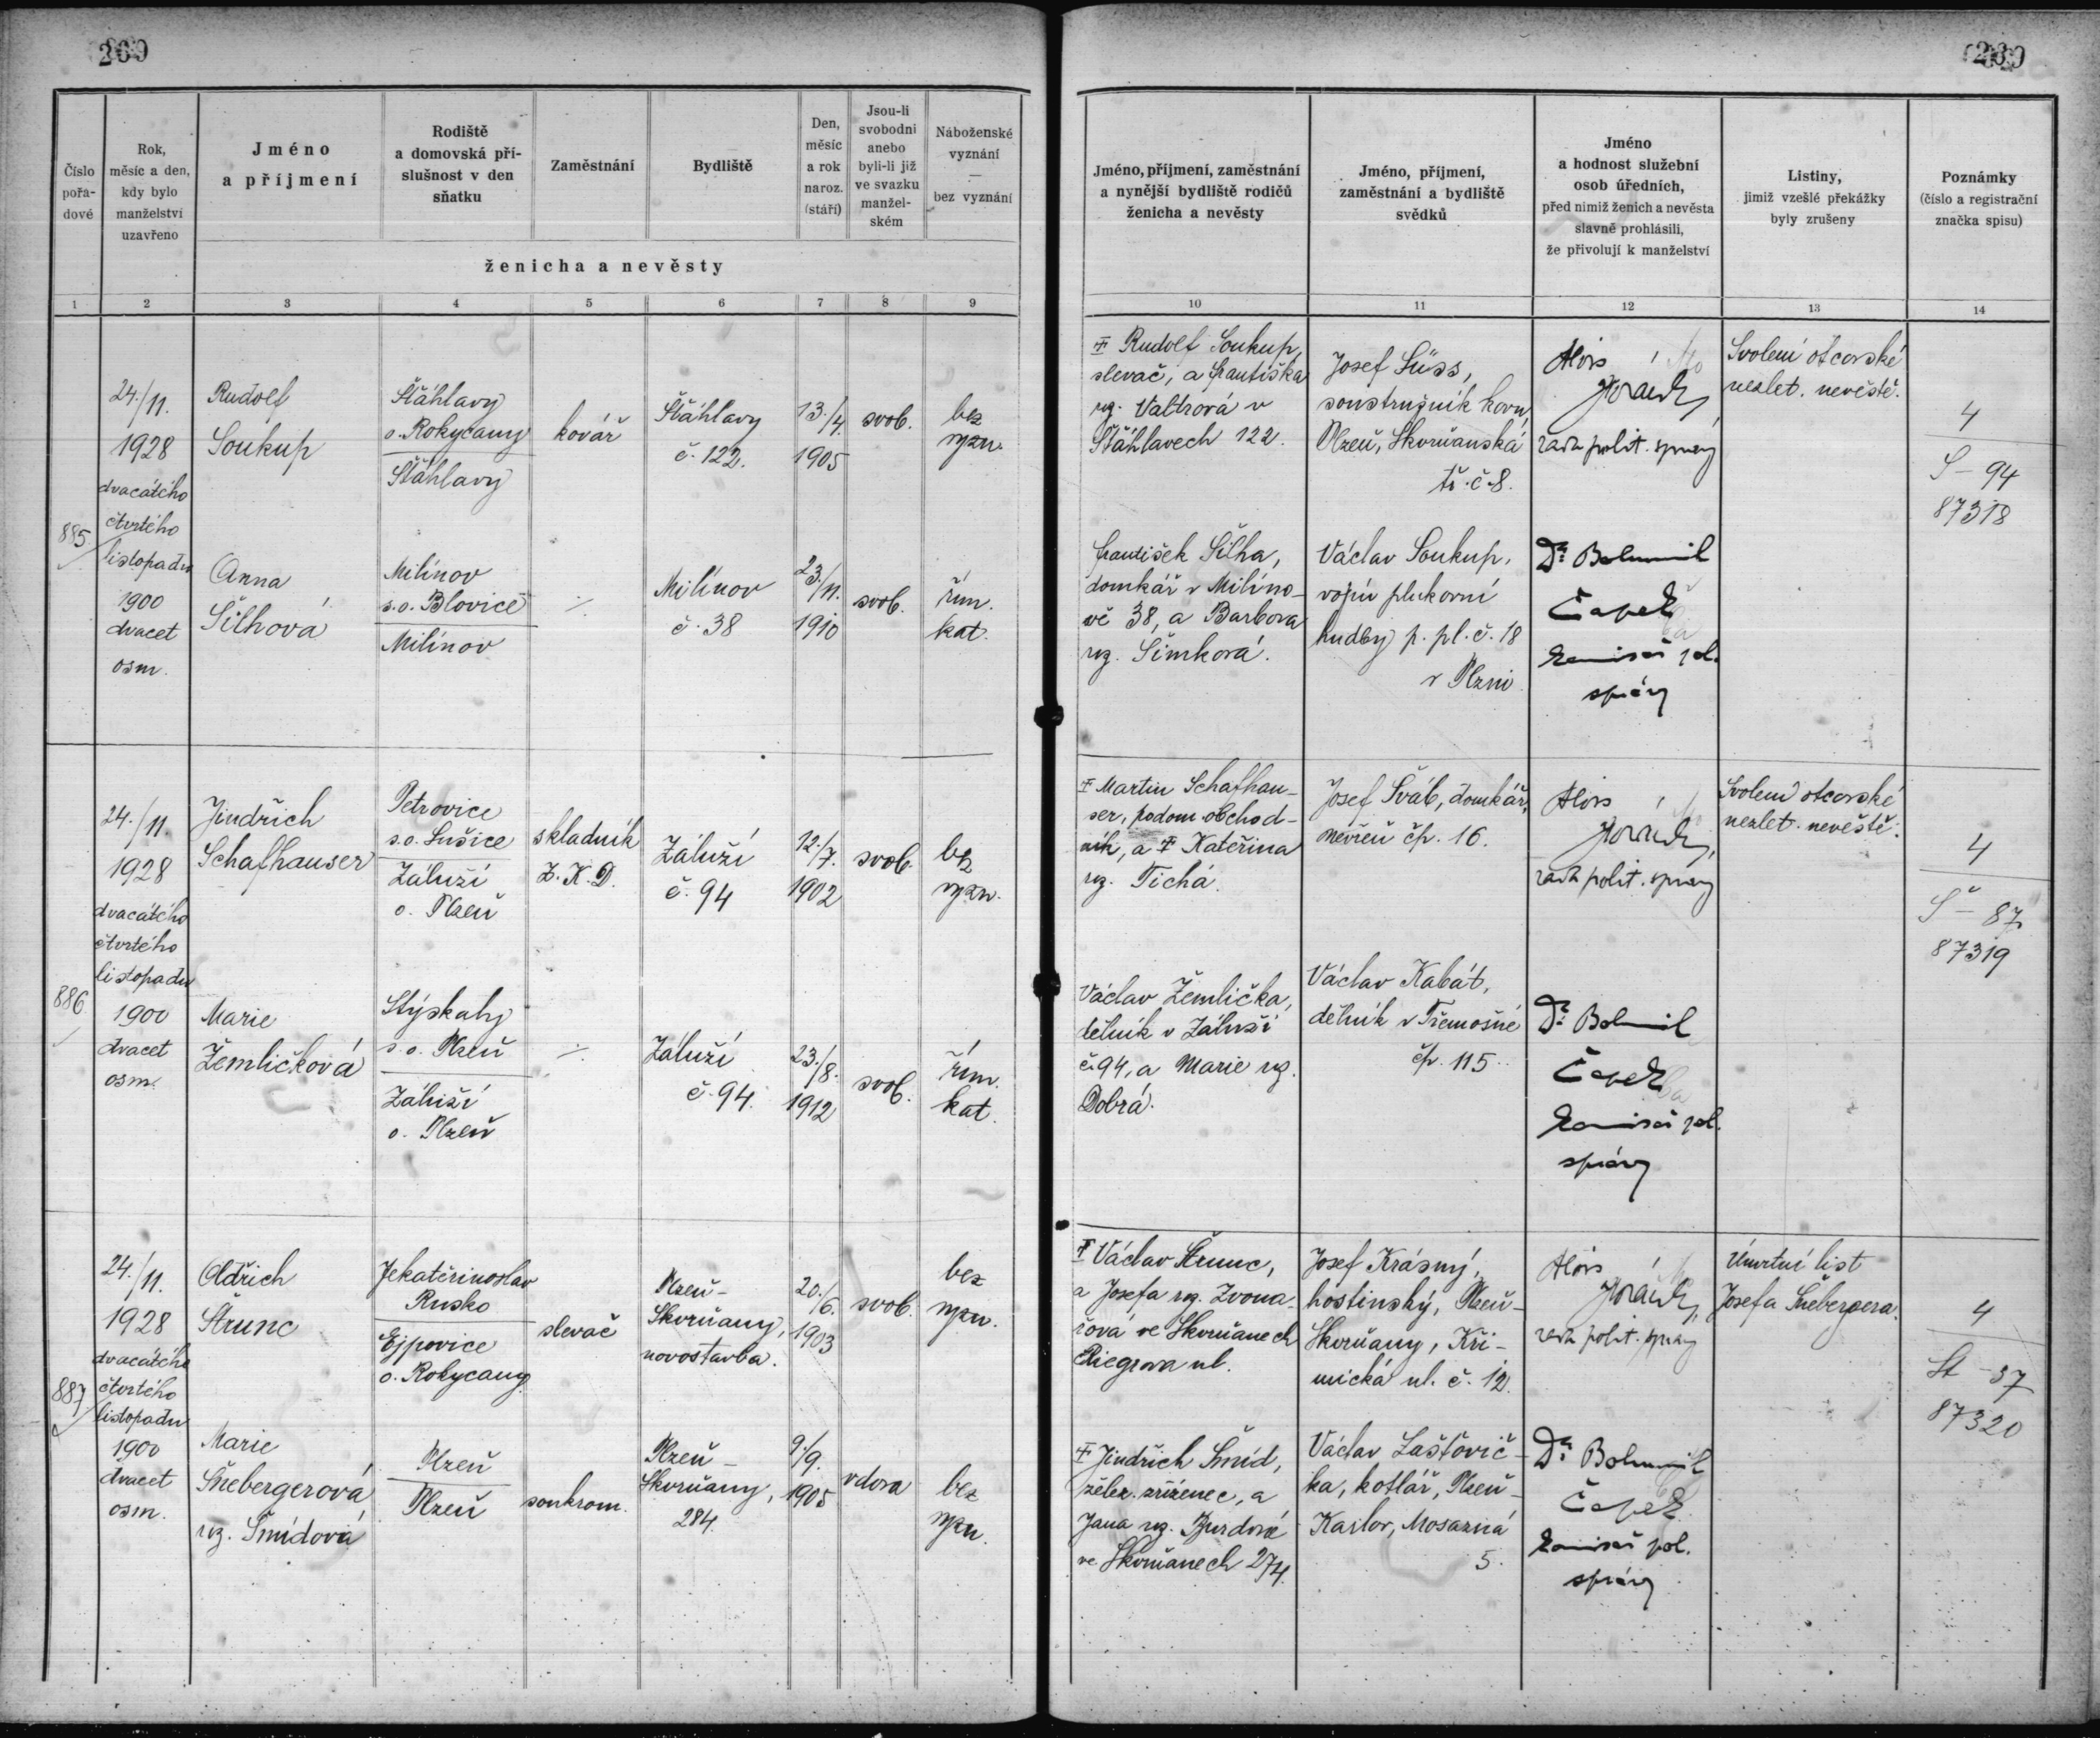 Číslo
pořa-
dové
Rok,
měsíc a den,
kdy bylo
manželství
uzavřeno
Jméno
a příjmení
Rodiště
a domovská pří-
slušnost v den
sňatku
Zaměstnání
Bydliště
Den,
měsíc
a rok
naroz.
(stáří)
Jsou-li
svobodni
anebo
byli-li již
ve svazku
manžel-
ském
Náboženské
vyznání
—
bez vyznání
ženicha a nevěsty
1 2 3 4 5 6 7 8 9
885
24./11.
1928
dvacátého
čtvrtého
listopadu
1900
dvacet
osm.
Rudolf
Soukup
Šťáhlavy
o. Rokycany
Šťáhlavy
kovář
Šťáhlavy
č. 122.
13./4.
1905
svob.
bez
vyzn.
Anna
Šilhová
Milínov
s.o. Blovice
Milínov
Milínov
č. 38
23./11.
1910
svob.
řím.
kat.
886
24./11.
1928
dvacátého
čtvrtého
listopadu
1900
dvacet
osm.
Jindřich
Schafhauser
Petrovice
s.o. Sušice
Záluží
o. Plzeň
skladník
Z.K.D.
Záluží
č. 94
12./7.
1902
svob.
bez
vyzn.
Marie
Žemličková
Stýskaly
s.o. Plzeň
Záluží
o. Plzeň
Záluží
č. 94.
23./8.
1912
svob.
řím.
kat.
887
24./11.
1928
dvacátého
čtvrtého
listopadu
1900
dvacet
osm.
Oldřich
Štrunc
Jekatěrinoslav
Rusko
Ejpovice
o. Rokycany
slevač
Plzeň-
Skvrňany,
novostavba.
20./6.
1903
svob.
bez
vyzn.
Marie
Šnebergerová
roz. Šmídová
Plzeň
Plzeň
soukrom.
Plzeň-
Skvrňany,
284.
9./9.
1905
vdova
bez
vyzn.
Jméno, příjmení, zaměstnání
a nynější bydliště rodičů
ženicha a nevěsty
Jméno, příjmení,
zaměstnání a bydliště
svědků
Jméno
a hodnost služební
osob úředních,
před nimiž ženich a nevěsta
slavně prohlásili,
že přivolují k manželství
Listiny,
jimiž vzešlé překážky
byly zrušeny
Poznámky
(číslo a registrační
značka spisu)
10 11 12 13 14
Rudolf Soukup,
slevač, a Františka
roz. Valtrová v
Šťáhlavech 122.
Josef Süss,
soustružník kovů,
Plzeň, Skvrňanská
tř. č. 8.
Alois
rada polit. správy
Svolení otcovské
nezlet. nevěstě.
4
S – 94
87318
František Šilha,
domkář v Milíno-
vě 38, a Barbora
roz. Šimková.
Václav Soukup,
vojín plukovní
hudby p. pl. č. 18
v Plzni
Dr. Bohumil
Čapek
komisař pol.
správy
Martin Schafhau-
ser, podom. obchod-
ník, a Kateřina
roz. Tichá.
Josef Šváb, domkář,
Nevřeň čp. 16.
Alois
rada polit. správy
Svolení otcovské
nezlet. nevěstě.
4
Š – 87
87319
Václav Žemlička,
dělník v Záluží
č. 94, a Marie roz.
Dobrá.
Václav Kabát,
dělník v Třemošné
čp. 115.
Dr. Bohumil
Čapek
komisař pol.
správy
Václav Štrunc,
a Josefa roz. Zvona-
řová ve Skvrňanech
Riegrova ul.
Josef Krásný,
hostinský, Plzeň-
Skvrňany, Kři-
mická ul. č. 12.
Alois
rada polit. správy
Úmrtní list
Josefa Šnebergera.
4
St – 37
87320
Jindřich Šmíd,
želez. zřízenec, a
Jana roz.
ve Skvrňanech 274.
Václav Laštovič-
ka, kotlář, Plzeň-
Karlov, Mosazná
5.
Dr. Bohumil
Čapek
komisař pol.
správy